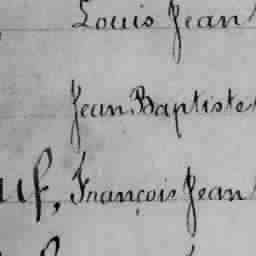 Louis Jean
Jean Baptiste
uf, François Jean